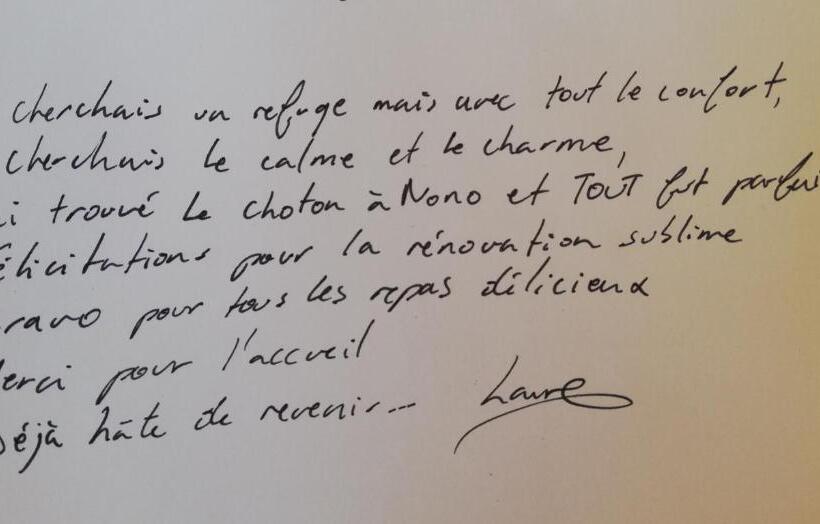 cherchais un refuge mais avec tout le confort,
cherchais le calme et le charme,
i trouvé le choton à Nono et TOUT fut parfai
élicitations pour la rénovation sublime
ravo pour tous les repas délicieux
erci pour l'accueil
éjà hâte de revenir... Laure